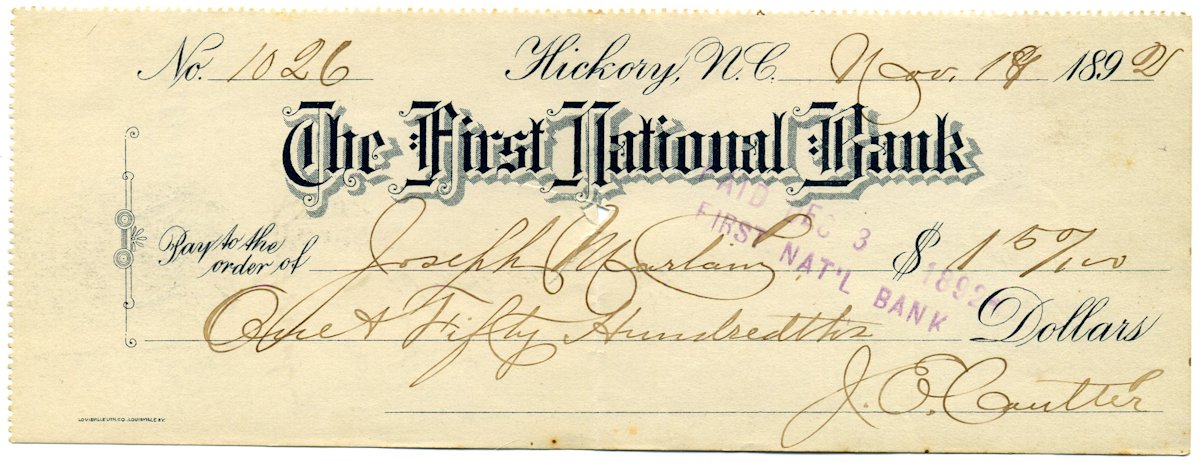 No. 1026 Hickory, N.C. Nov. 18 1892
The First National Bank
PAID DEC 3 1892
FIRST NAT'L BANK
Pay to the order of Joseph Martain $ 1 50/100
One & Fifty Hundredths Dollars
J. E. Coutter
LOUISVILLE LITH. CO. LOUISVILLE KY.